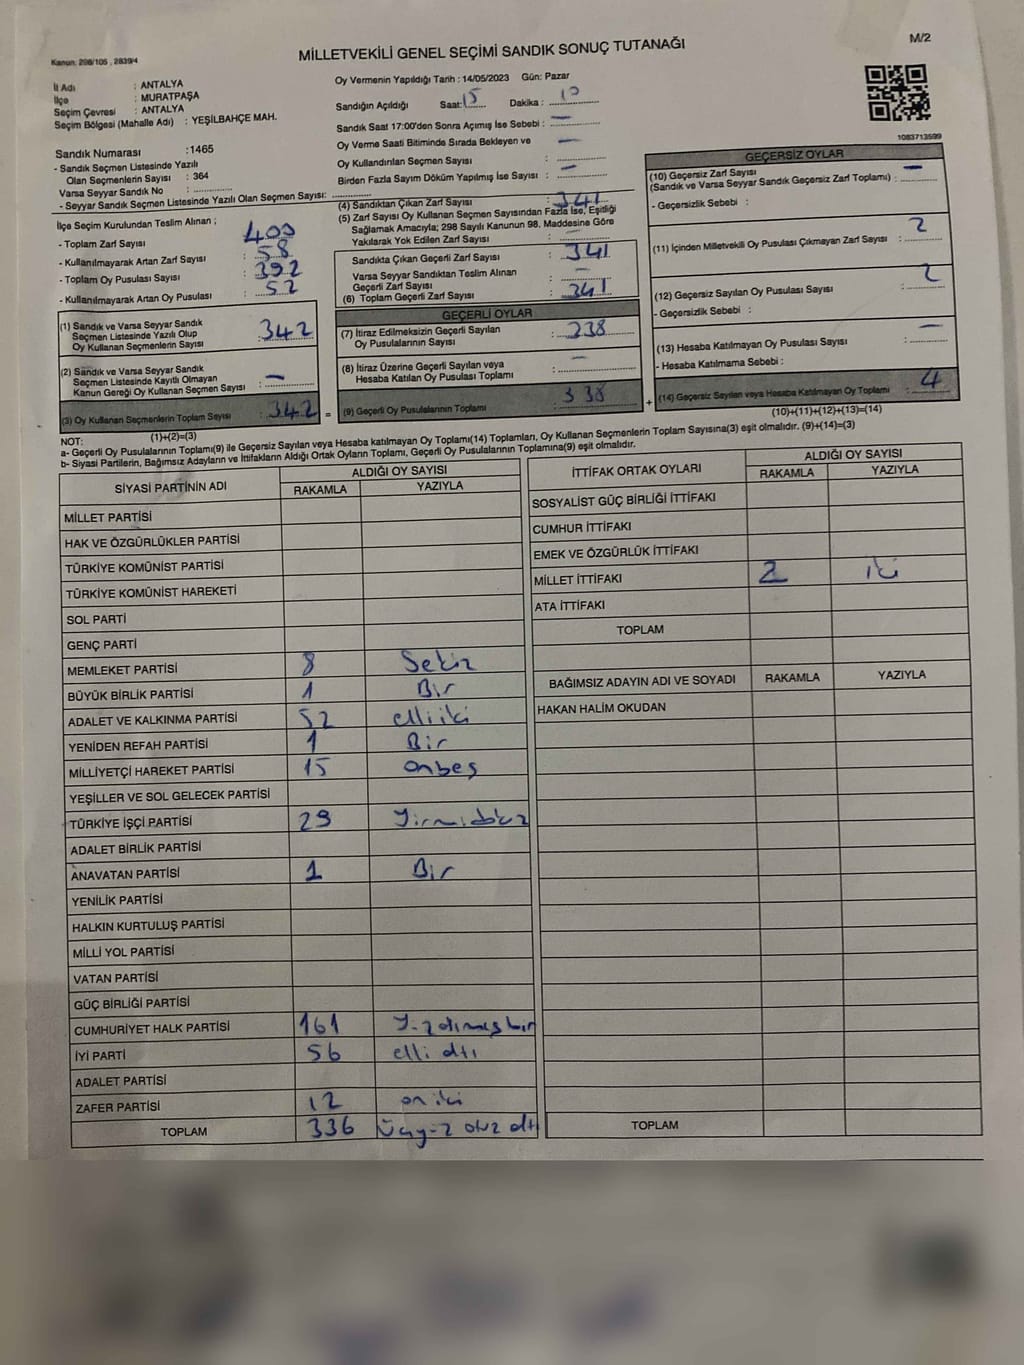 MİLLETVEKİLİ GENEL SEÇİMİ SANDIK SONUÇ TUTANAĞI
M/2
Kanun: 298/105 , 2839/4
İl Adı : ANTALYA
İlçe : MURATPAŞA
Seçim Çevresi : ANTALYA
Seçim Bölgesi (Mahalle Adı) : YEŞİLBAHÇE MAH.
Sandık Numarası :1465
- Sandık Seçmen Listesinde Yazılı
Olan Seçmenlerin Sayısı : 364
Varsa Seyyar Sandık No :
- Seyyar Sandık Seçmen Listesinde Yazılı Olan Seçmen Sayısı:
Oy Vermenin Yapıldığı Tarih : 14/05/2023 Gün: Pazar
Sandığın Açıldığı Saat: 15 Dakika :
Sandık Saat 17:00'den Sonra Açımış İse Sebebi : —
Oy Verme Saati Bitiminde Sırada Bekleyen ve
Oy Kullandırılan Seçmen Sayısı : —
Birden Fazla Sayım Döküm Yapılmış İse Sayısı : —
1083713599
İlçe Seçim Kurulundan Teslim Alınan ;
- Toplam Zarf Sayısı : 400
- Kullanılmayarak Artan Zarf Sayısı : 58
- Toplam Oy Pusulası Sayısı : 392
- Kullanılmayarak Artan Oy Pusulası : 52
(1) Sandık ve Varsa Seyyar Sandık
Seçmen Listesinde Yazılı Olup
Oy Kullanan Seçmenlerin Sayısı : 342
(2) Sandık ve Varsa Seyyar Sandık
Seçmen Listesinde Kayıtlı Olmayan
Kanun Gereği Oy Kullanan Seçmen Sayısı : —
(3) Oy Kullanan Seçmenlerin Toplam Sayısı : 342 =
(1)+(2)=(3)
(4) Sandıktan Çıkan Zarf Sayısı : 341
(5) Zarf Sayısı Oy Kullanan Seçmen Sayısından Fazla İse, Eşitliği
Sağlamak Amacıyla; 298 Sayılı Kanunun 98. Maddesine Göre
Yakılarak Yok Edilen Zarf Sayısı : —
Sandıkta Çıkan Geçerli Zarf Sayısı : 341
Varsa Seyyar Sandıktan Teslim Alınan
Geçerli Zarf Sayısı : —
(6) Toplam Geçerli Zarf Sayısı : 341
GEÇERLİ OYLAR
(7) İtiraz Edilmeksizin Geçerli Sayılan
Oy Pusulalarının Sayısı : 338
(8) İtiraz Üzerine Geçerli Sayılan veya
Hesaba Katılan Oy Pusulası Toplamı : —
(9) Geçerli Oy Pusulalarının Toplamı : 338 +
GEÇERSİZ OYLAR
(10) Geçersiz Zarf Sayısı
(Sandık ve Varsa Seyyar Sandık Geçersiz Zarf Toplamı) : —
- Geçersizlik Sebebi :
(11) İçinden Milletvekili Oy Pusulası Çıkmayan Zarf Sayısı : 2
(12) Geçersiz Sayılan Oy Pusulası Sayısı : 2
- Geçersizlik Sebebi :
(13) Hesaba Katılmayan Oy Pusulası Sayısı : —
- Hesaba Katılmama Sebebi :
(14) Geçersiz Sayılan veya Hesaba Katılmayan Oy Toplamı : 4
(10)+(11)+(12)+(13)=(14)
NOT:
a- Geçerli Oy Pusulalarının Toplamı(9) ile Geçersiz Sayılan veya Hesaba katılmayan Oy Toplamı(14) Toplamları, Oy Kullanan Seçmenlerin Toplam Sayısına(3) eşit olmalıdır. (9)+(14)=(3)
b- Siyasi Partilerin, Bağımsız Adayların ve İttifakların Aldığı Ortak Oyların Toplamı, Geçerli Oy Pusulalarının Toplamına(9) eşit olmalıdır.
SİYASİ PARTİNİN ADI ALDIĞI OY SAYISI
RAKAMLA YAZIYLA
MİLLET PARTİSİ
HAK VE ÖZGÜRLÜKLER PARTİSİ
TÜRKİYE KOMÜNİST PARTİSİ
TÜRKİYE KOMÜNİST HAREKETİ
SOL PARTİ
GENÇ PARTİ
MEMLEKET PARTİSİ 8 Sekiz
BÜYÜK BİRLİK PARTİSİ 1 Bir
ADALET VE KALKINMA PARTİSİ 52 elli iki
YENİDEN REFAH PARTİSİ 1 Bir
MİLLİYETÇİ HAREKET PARTİSİ 15 onbeş
YEŞİLLER VE SOL GELECEK PARTİSİ
TÜRKİYE İŞÇİ PARTİSİ 29 Yirmidokuz
ADALET BİRLİK PARTİSİ
ANAVATAN PARTİSİ 1 Bir
YENİLİK PARTİSİ
HALKIN KURTULUŞ PARTİSİ
MİLLİ YOL PARTİSİ
VATAN PARTİSİ
GÜÇ BİRLİĞİ PARTİSİ
CUMHURİYET HALK PARTİSİ 161 Yüzatmışbir
İYİ PARTİ 56 elli altı
ADALET PARTİSİ
ZAFER PARTİSİ 12 on iki
TOPLAM 336 üçyüz otuz altı
İTTİFAK ORTAK OYLARI ALDIĞI OY SAYISI
RAKAMLA YAZIYLA
SOSYALİST GÜÇ BİRLİĞİ İTTİFAKI
CUMHUR İTTİFAKI
EMEK VE ÖZGÜRLÜK İTTİFAKI
MİLLET İTTİFAKI 2 iki
ATA İTTİFAKI
TOPLAM
BAĞIMSIZ ADAYIN ADI VE SOYADI RAKAMLA YAZIYLA
HAKAN HALİM OKUDAN
TOPLAM